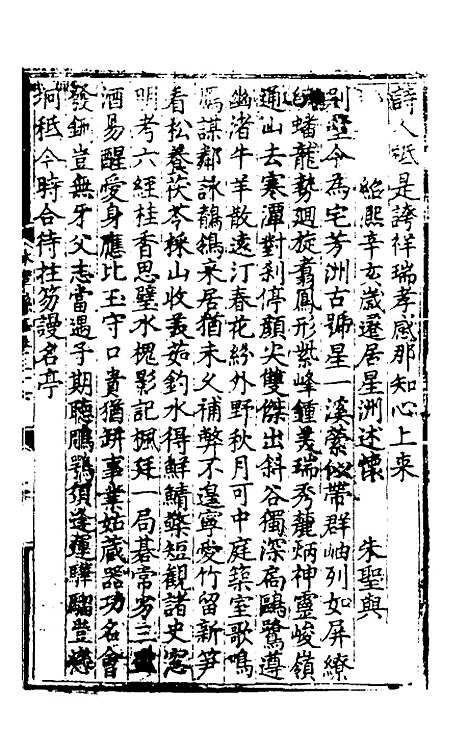 詩人秪是誇祥瑞孝感那知心上來
紹熙辛亥歲遷居星洲述懷　朱聖與
別墅今為宅芳洲古號星一溪縈似帶群岫列如屏繚
繞蟠龍勢廻旋翥鳳形紫峰鍾美瑞秀麓炳神靈峻嶺
通山去寒潭對刹停顏尖雙傑出斜谷獨深扃鷗鷺遵
幽渚牛羊散遠汀春花紛外野秋月可中庭築室歌鳴
謀鄰詠鶺鴒采居猶未久補弊不遑寧愛竹留新笋
看松養茯苓棶山收蕨茹釣水得鮮鯖槩短觀諸史窓
明考六經桂香思璧水槐影記楓廷一局碁常劣三
酒易醒愛身應比玉守口貴猶缾事業姑藏器功名會
發鉶豈無牙父志當遇子期聽鵬鶚須逢運驊騮登
坰秪今時合待拄笏謾名亭